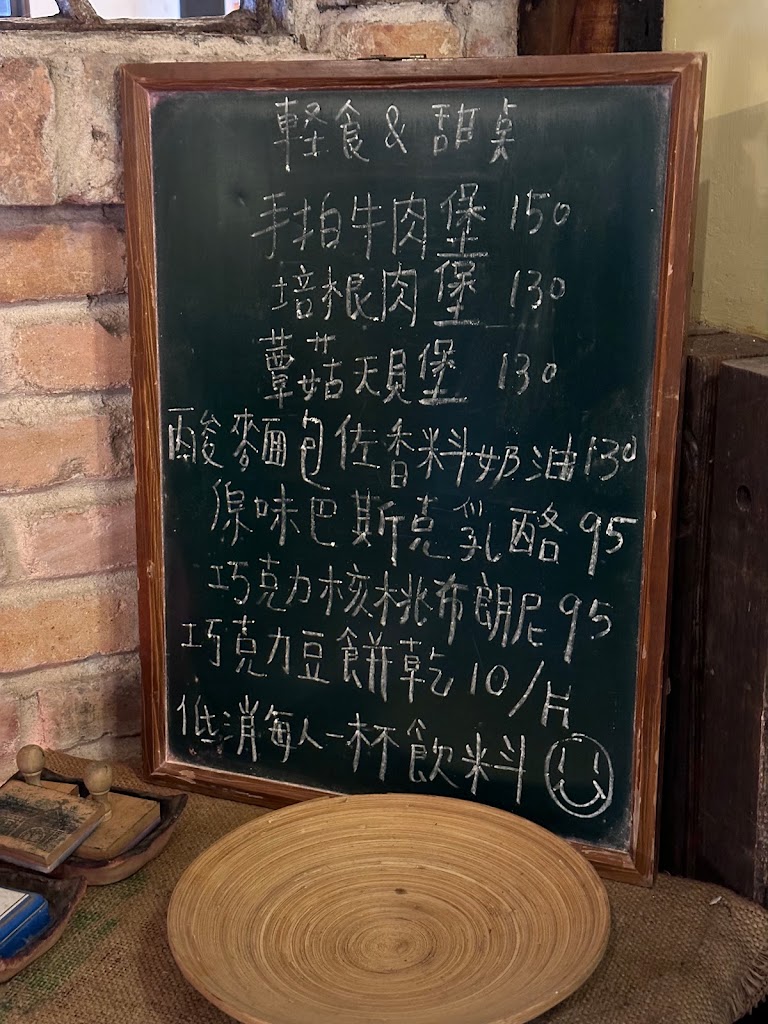 軽食 & 甜点
手拍牛肉堡 150
培根肉堡 130
蕈菇天貝堡 130
酸麵包佐香料奶油 130
原味巴斯克乳酪 95
巧克力核桃布朗尼 95
巧克力豆餅乾 10/片
低消每人一杯飲料